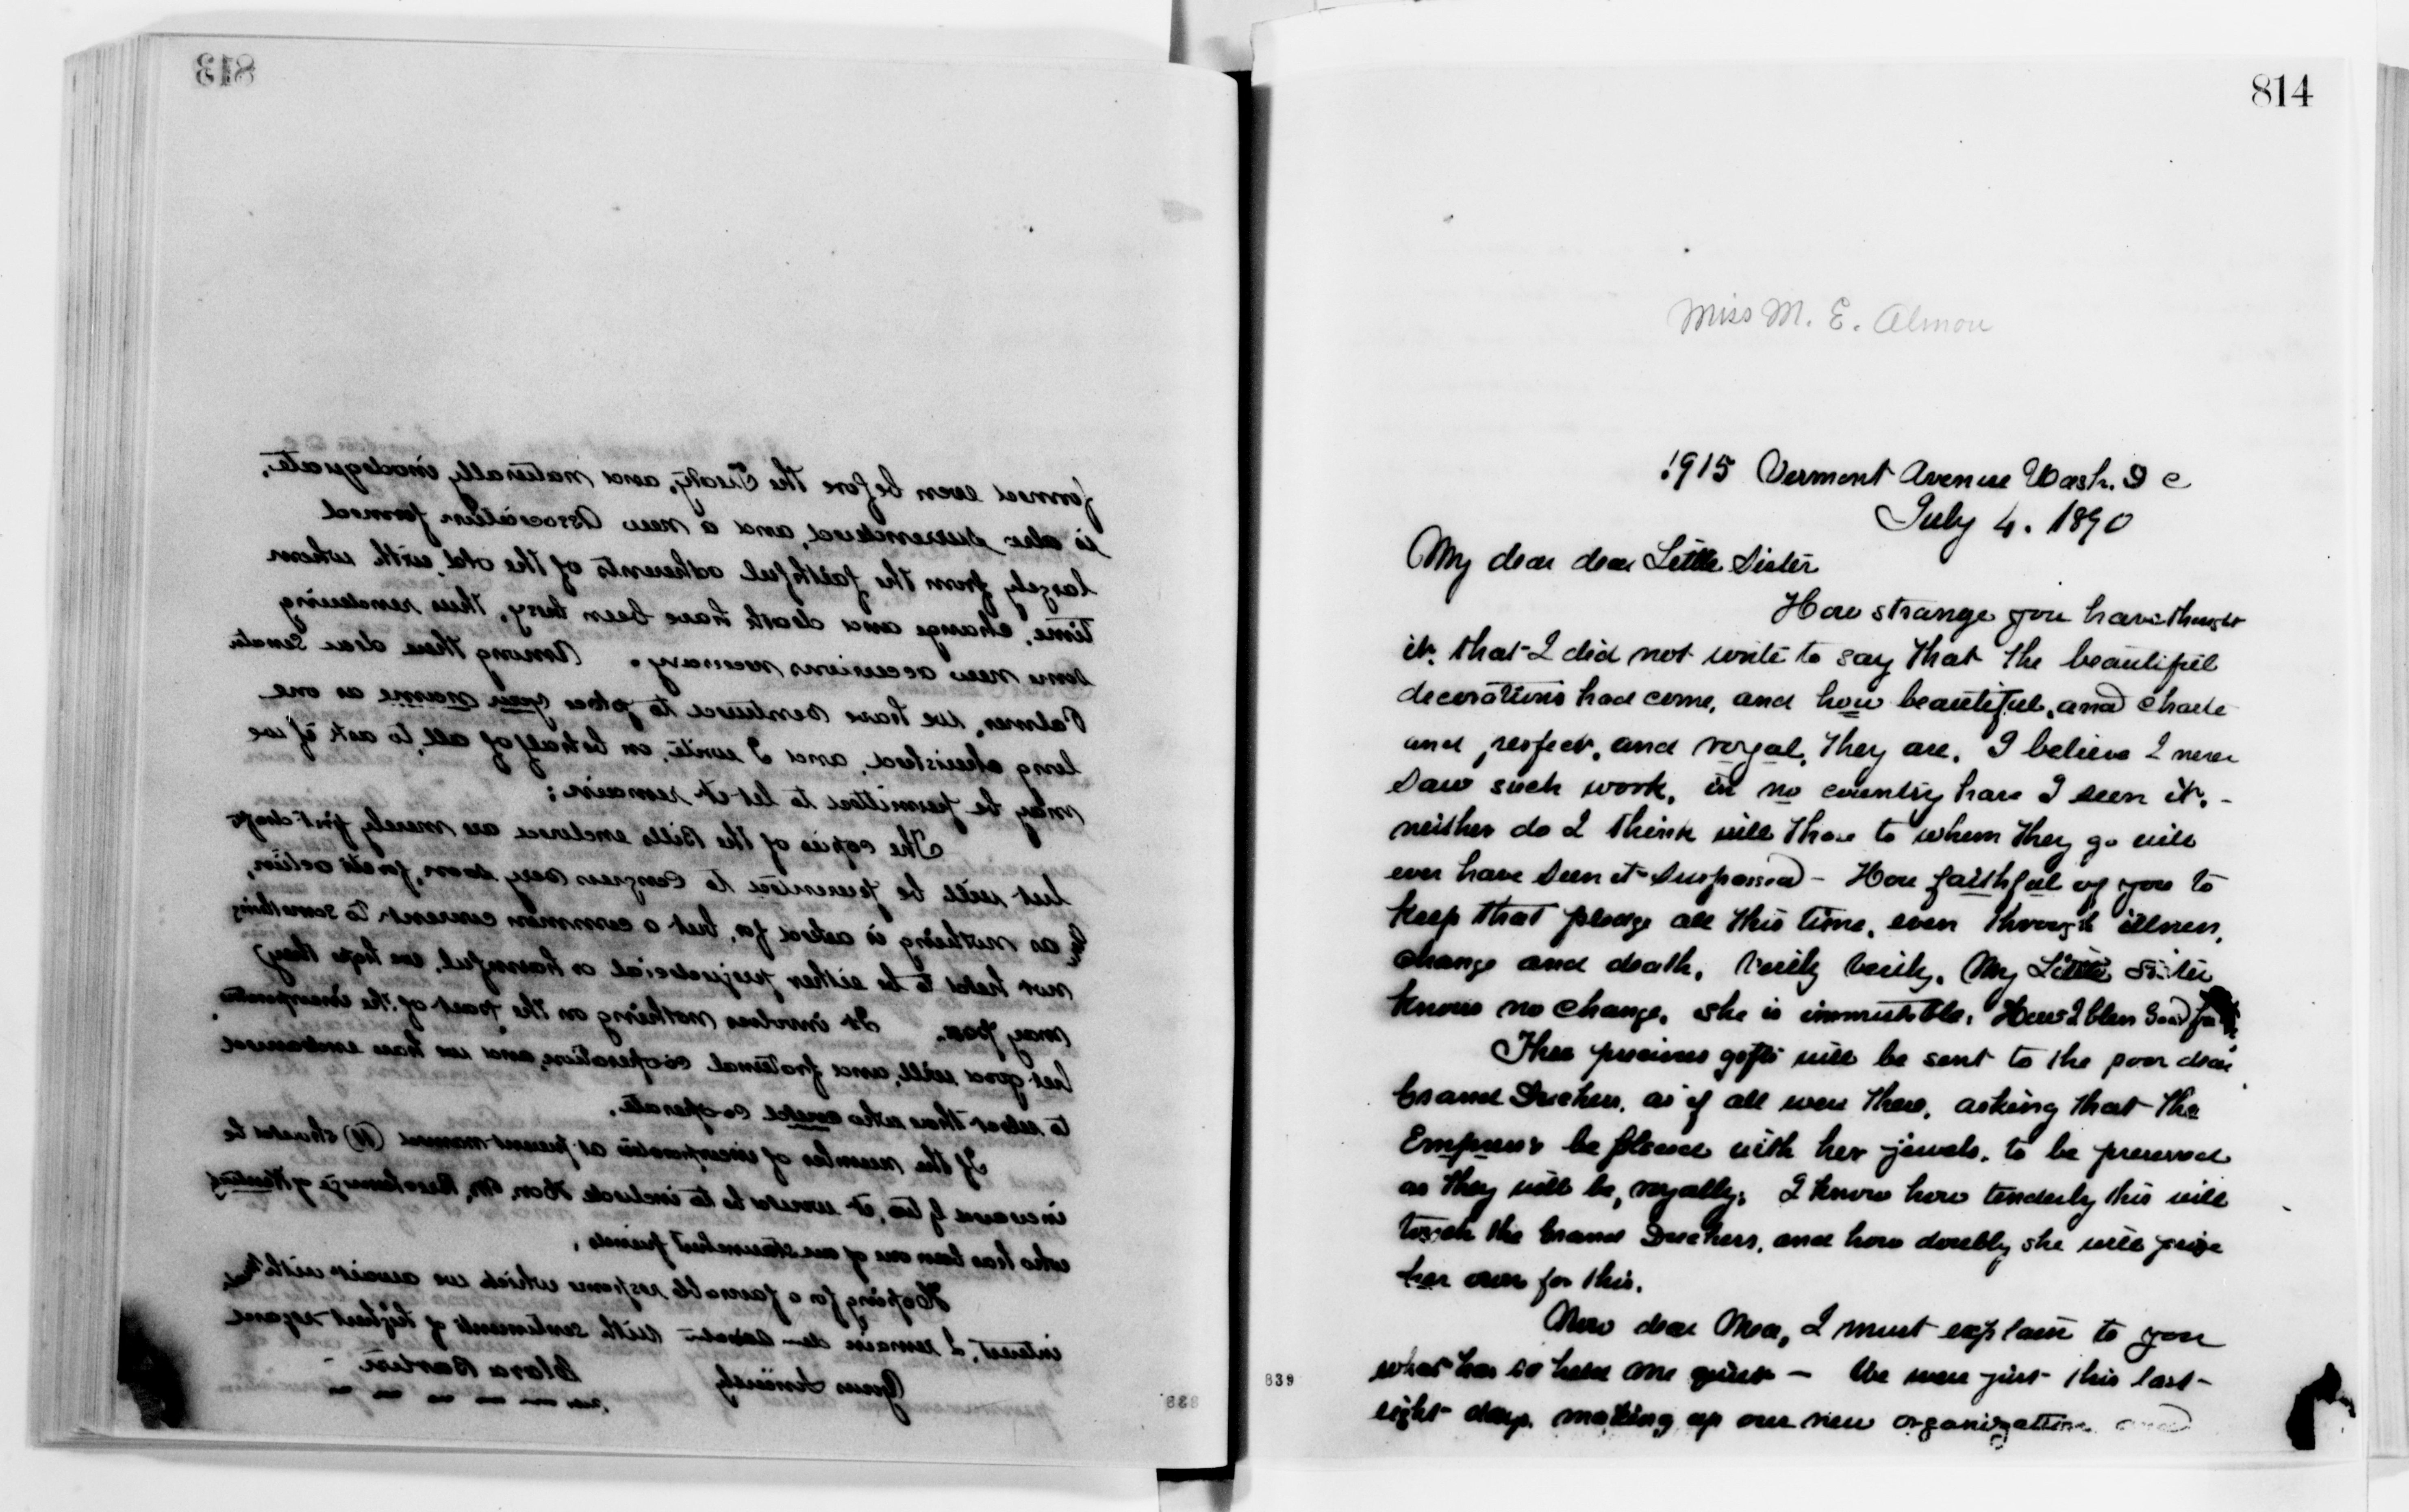 813
formed even before the Treaty, and naturally inadequate,
is also surrendered, and a new Association formed
largely from the faithful adherents of the old, with whom
time, change and death have been busy, thus rendering
some new accessions necessary. Among these dear Senator
Palmer, we have ventured to place your name as one
long cherished, and I write, on behalf of all, to ask if we
may be permitted to let it remain;
The copies of the Bills enclosed are merely first drafts
but will be presented to Congress very soon, for its action,
as nothing is asked for, but a common consent to something
not held to be either prejudicial or harmful, we hope they
may pass. It involves nothing on the part of the incorporators
but good will, and fraternal co-operation, and we have endeavored
to select those who would co-operate.
If the number of incorporators at present named (11) should be
increased by two, it would be to include Hon.
who has been one of our staunchest friends.
Hoping for a favorable response which we await with
interest, I remain dear Senator with sentiments of highest regard
Yours Sincerely
Clara Barton
838
814
Miss M. E. Almon
1915 Vermont Avenue Wash. D C
July 4. 1890
My dear dear Little Sister
How strange you have thought
it, that I did not write to say that the beautiful
decorations had come, and how beautiful, and chaste
and perfect, and royal, they are. I believe I never
saw such work, in no country have I seen it, -
neither do I think will those to whom they go will
ever have seen it surpassed - How faithful of you to
keep that pledge all this time, even through illness,
change and death. Verily verily, My Little Sister
knows no change. she is immutable. How I bless God for
These precious gifts will be sent to the poor dear
Grand Duchess, as if all were there, asking that the
Empress's be placed with her jewels, to be preserved
as they will be, royally; I know how tenderly this will
touch the Grand Duchess, and how doubly she will prize
her own for this.
Now dear Mea, I must explain to you
what has so held me quiet — We were just this last
eight days, making up our new organization and
839